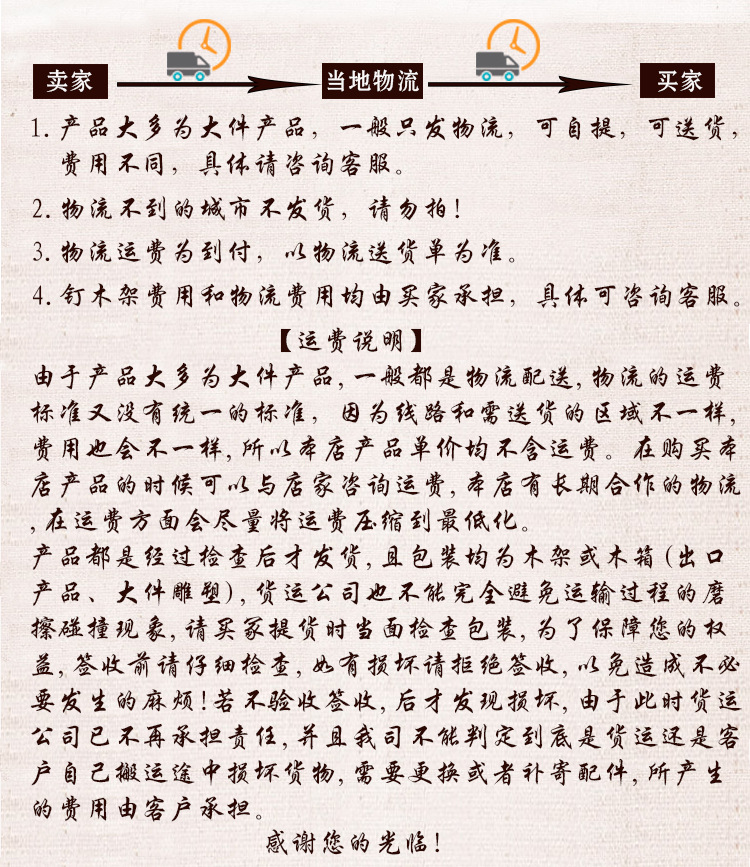 卖家 当地物流 买家
1. 产品大多为大件产品，一般只发物流，可自提，可送货，
费用不同，具体请咨询客服。
2. 物流不到的城市不发货，请勿拍！
3. 物流运费为到付，以物流送货单为准。
4. 钉木架费用和物流费用均由买家承担，具体可咨询客服。
【运费说明】
由于产品大多为大件产品，一般都是物流配送，物流的运费
标准又没有统一的标准，因为线路和需送货的区域不一样，
费用也会不一样，所以本店产品单价均不含运费。在购买本
店产品的时候可以与店家咨询运费，本店有长期合作的物流
，在运费方面会尽量将运费压缩到最低化。
产品都是经过检查后才发货，且包装均为木架或木箱（出口
产品、大件雕塑），货运公司也不能完全避免运输过程的磨
擦碰撞现象，请买家提货时当面检查包装，为了保障您的权
益，签收前请仔细检查，如有损坏请拒绝签收，以免造成不必
要发生的麻烦！若不验收签收，后才发现损坏，由于此时货运
公司已不再承担责任，并且我司不能判定到底是货运还是客
户自己搬运途中损坏货物，需要更换或者补寄配件，所产生
的费用由客户承担。
感谢您的光临！